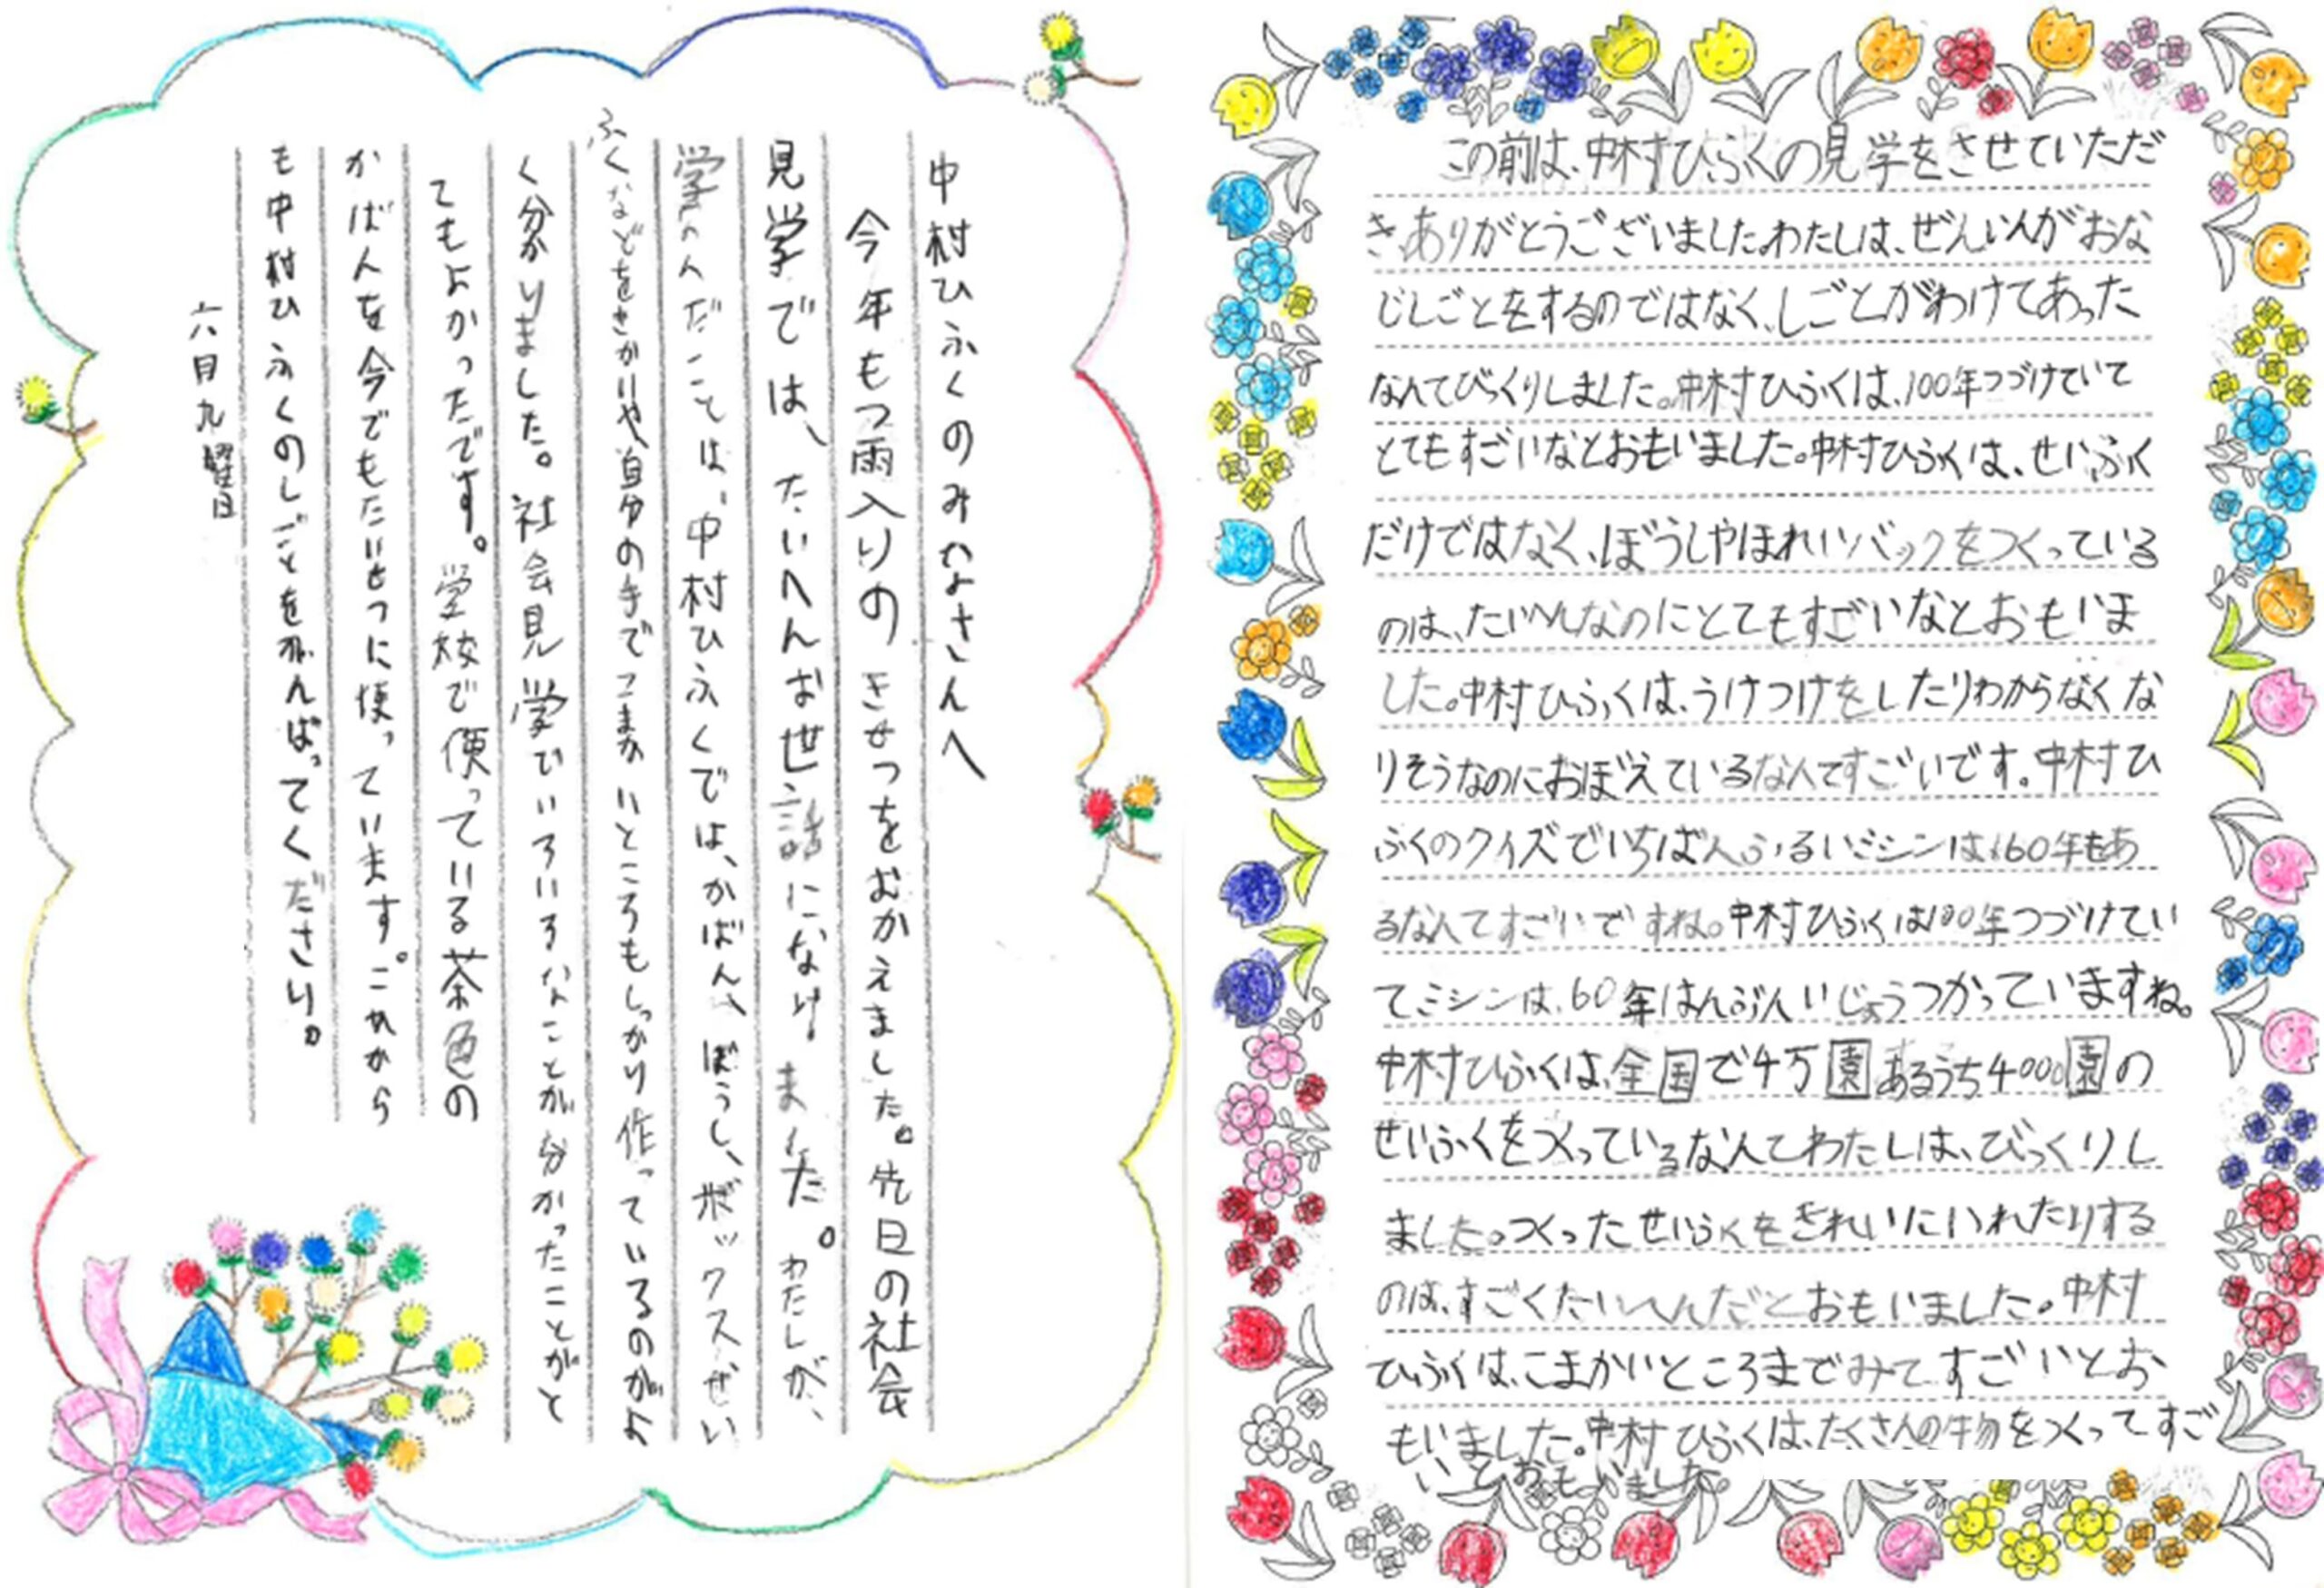 中村ひふくのみなさんへ
今年もつ雨入りのきせつをむかえました。先日の社会
見学では、たいへんお世話になりました。わたしが、
学んだことは、中村ひふくでは、かばん、ぼうし、ボックスぜい
ふくなどをきかいや、自分の手でこまかいところもしっかり作っているのがよ
く分かりました。社会見学でいろいろなことが分かったことがと
てもよかったです。学校で使っている茶色の
かばんを今でもたいせつに使っています。これから
も中村ひふくのしごとをがんばってください。
六月九曜日
この前は、中村ひふくの見学をさせていただ
きありがとうございました。わたしは、ぜんいんがおな
じしごとをするのではなく、しごとがわけてあった
なんてびっくりしました。中村ひふくは、100年つづけていて
とてもすごいなとおもいました。中村ひふくは、せいふく
だけではなく、ぼうしやほれいバックをつくっている
のは、たいへんなのにとてもすごいなとおもいま
した。中村ひふくは、うけつけをしたりわからなくな
りそうなのにおぼえているなんてすごいです。中村ひ
ふくのクイズでいちばんふるいミシンは、60年もあ
るなんてすごいですね。中村ひふくは100年つづけてい
てミシンは、60年はんぶんいじょうつかっていますね。
中村ひふくは、全国で4万園あるうち4000園の
せいふくをつくっているなんてわたしは、びっくりし
ました。つくったせいふくをきれいにいれたりする
のは、すごくたいへんだとおもいました。中村
ひふくは、こまかいところまでみてすごいとお
もいました。中村ひふくは、たくさんの物をつくってすご
いとおもいました。